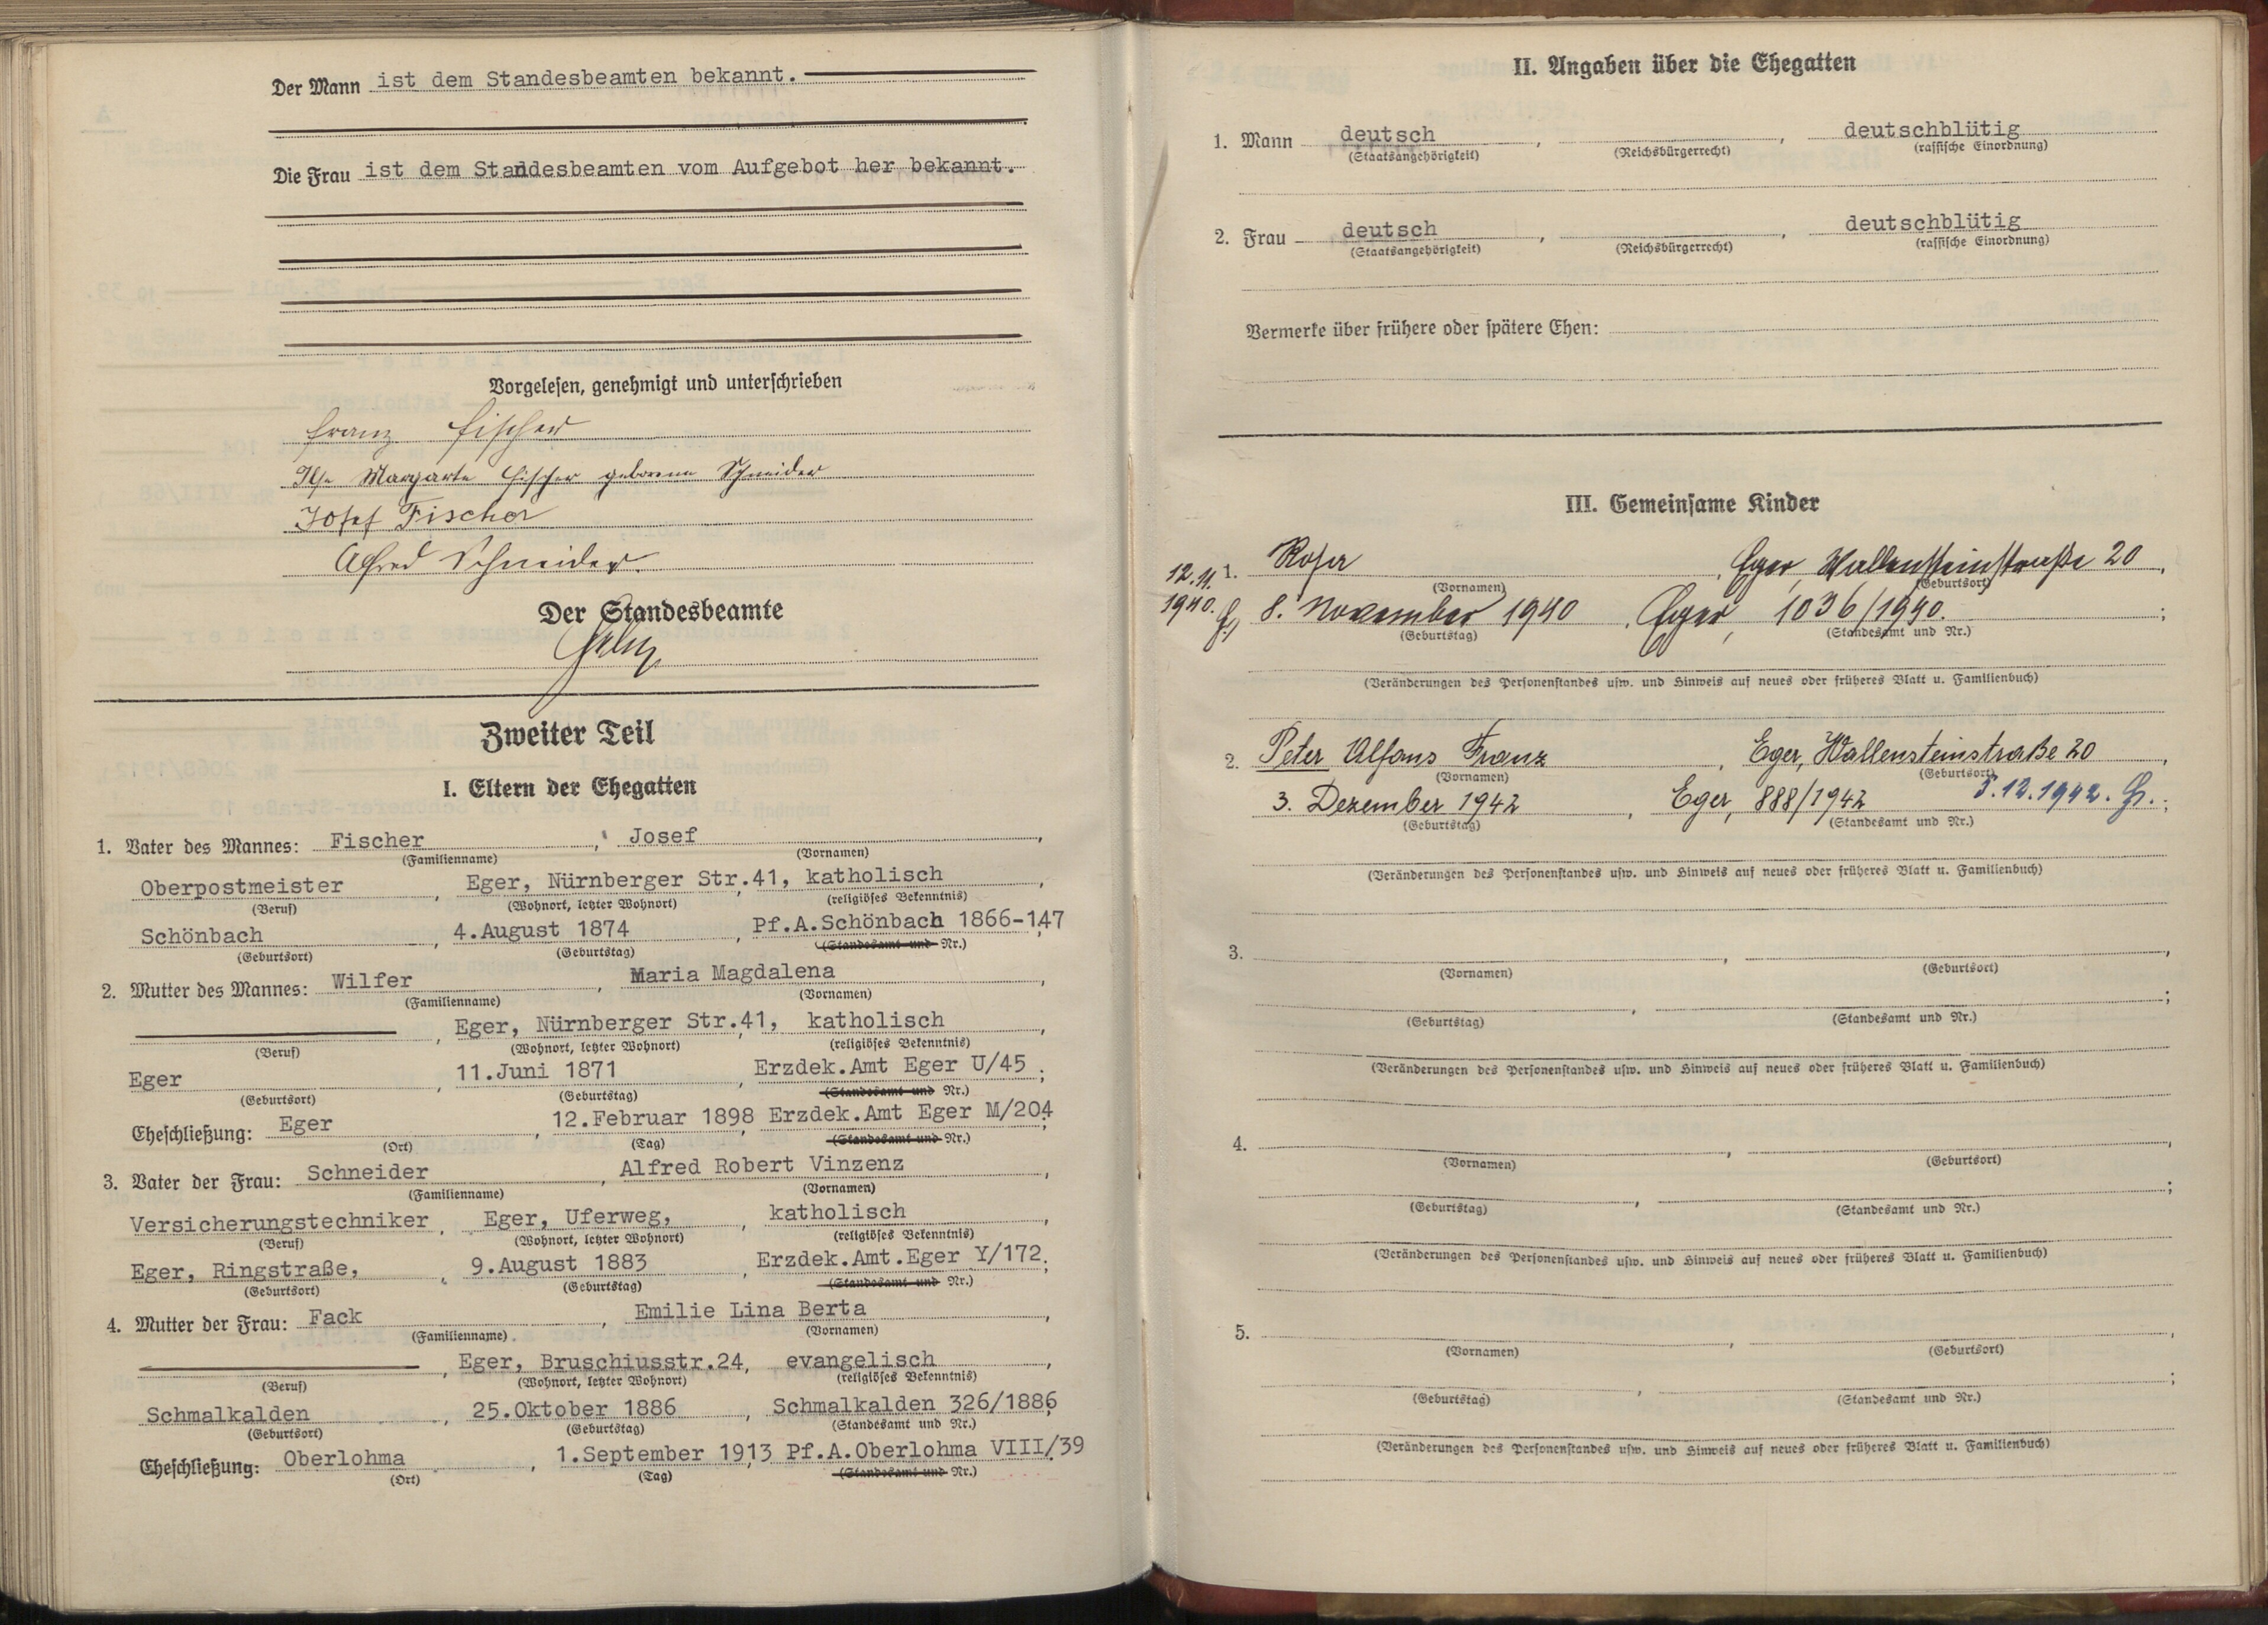 Der Mann ist dem Standesbeamten bekannt.
Die Frau ist dem Standesbeamten vom Aufgebot her bekannt.
Vorgelesen, genehmigt und unterschrieben
Franz Fischer
Ilse Margarte Fischer geborene Schneider
Josef Fischer
Alfred Schneider.
Der Standesbeamte
Zweiter Teil
I. Eltern der Ehegatten
1. Vater des Mannes: Fischer, Josef,
(Familienname) (Vornamen)
Oberpostmeister, Eger, Nürnberger Str.41, katholisch,
(Beruf) (Wohnort, letzter Wohnort) (religiöses Bekenntnis)
Schönbach, 4.August 1874, Pf.A.Schönbach 1866-147;
(Geburtsort) (Geburtstag) (Standesamt und Nr.)
2. Mutter des Mannes: Wilfer, Maria Magdalena,
(Familienname) (Vornamen)
, Eger, Nürnberger Str.41, katholisch,
(Beruf) (Wohnort, letzter Wohnort) (religiöses Bekenntnis)
Eger, 11.Juni 1871, Erzdek.Amt Eger U/45;
(Geburtsort) (Geburtstag) (Standesamt und Nr.)
Eheschließung: Eger, 12.Februar 1898, Erzdek.Amt Eger M/204;
(Ort) (Tag) (Standesamt und Nr.)
3. Vater der Frau: Schneider, Alfred Robert Vinzenz,
(Familienname) (Vornamen)
Versicherungstechniker, Eger, Uferweg, , katholisch,
(Beruf) (Wohnort, letzter Wohnort) (religiöses Bekenntnis)
Eger, Ringstraße, , 9.August 1883, Erzdek.Amt.Eger Y/172;
(Geburtsort) (Geburtstag) (Standesamt und Nr.)
4. Mutter der Frau: Fack, Emilie Lina Berta,
(Familienname) (Vornamen)
, Eger, Bruschiusstr.24, evangelisch,
(Beruf) (Wohnort, letzter Wohnort) (religiöses Bekenntnis)
Schmalkalden, 25.Oktober 1886, Schmalkalden 326/1886;
(Geburtsort) (Geburtstag) (Standesamt und Nr.)
Eheschließung: Oberlohma, 1.September 1913, Pf.A.Oberlohma VIII/39.
(Ort) (Tag) (Standesamt und Nr.)
II. Angaben über die Ehegatten
1. Mann deutsch, , deutschblütig
(Staatsangehörigkeit) (Reichsbürgerrecht) (rassische Einordnung)
2. Frau deutsch, , deutschblütig
(Staatsangehörigkeit) (Reichsbürgerrecht) (rassische Einordnung)
Vermerke über frühere oder spätere Ehen:
III. Gemeinsame Kinder
12.11. 1. Eger, Wallensteinstraße 20,
(Vornamen) (Geburtsort)
1940. 8. November 1940, Eger, 1036/1940.;
(Geburtstag) (Standesamt und Nr.)
(Veränderungen des Personenstandes usw. und Hinweis auf neues oder früheres Blatt u. Familienbuch)
2. Peter Alfons Franz, Eger, Wallensteinstraße 20,
(Vornamen) (Geburtsort)
3. Dezember 1942, Eger, 888/1942 5.12.1942.;
(Geburtstag) (Standesamt und Nr.)
(Veränderungen des Personenstandes usw. und Hinweis auf neues oder früheres Blatt u. Familienbuch)
3. , ,
(Vornamen) (Geburtsort)
, ;
(Geburtstag) (Standesamt und Nr.)
(Veränderungen des Personenstandes usw. und Hinweis auf neues oder früheres Blatt u. Familienbuch)
4. , ,
(Vornamen) (Geburtsort)
, ;
(Geburtstag) (Standesamt und Nr.)
(Veränderungen des Personenstandes usw. und Hinweis auf neues oder früheres Blatt u. Familienbuch)
5. , ,
(Vornamen) (Geburtsort)
, ;
(Geburtstag) (Standesamt und Nr.)
(Veränderungen des Personenstandes usw. und Hinweis auf neues oder früheres Blatt u. Familienbuch)